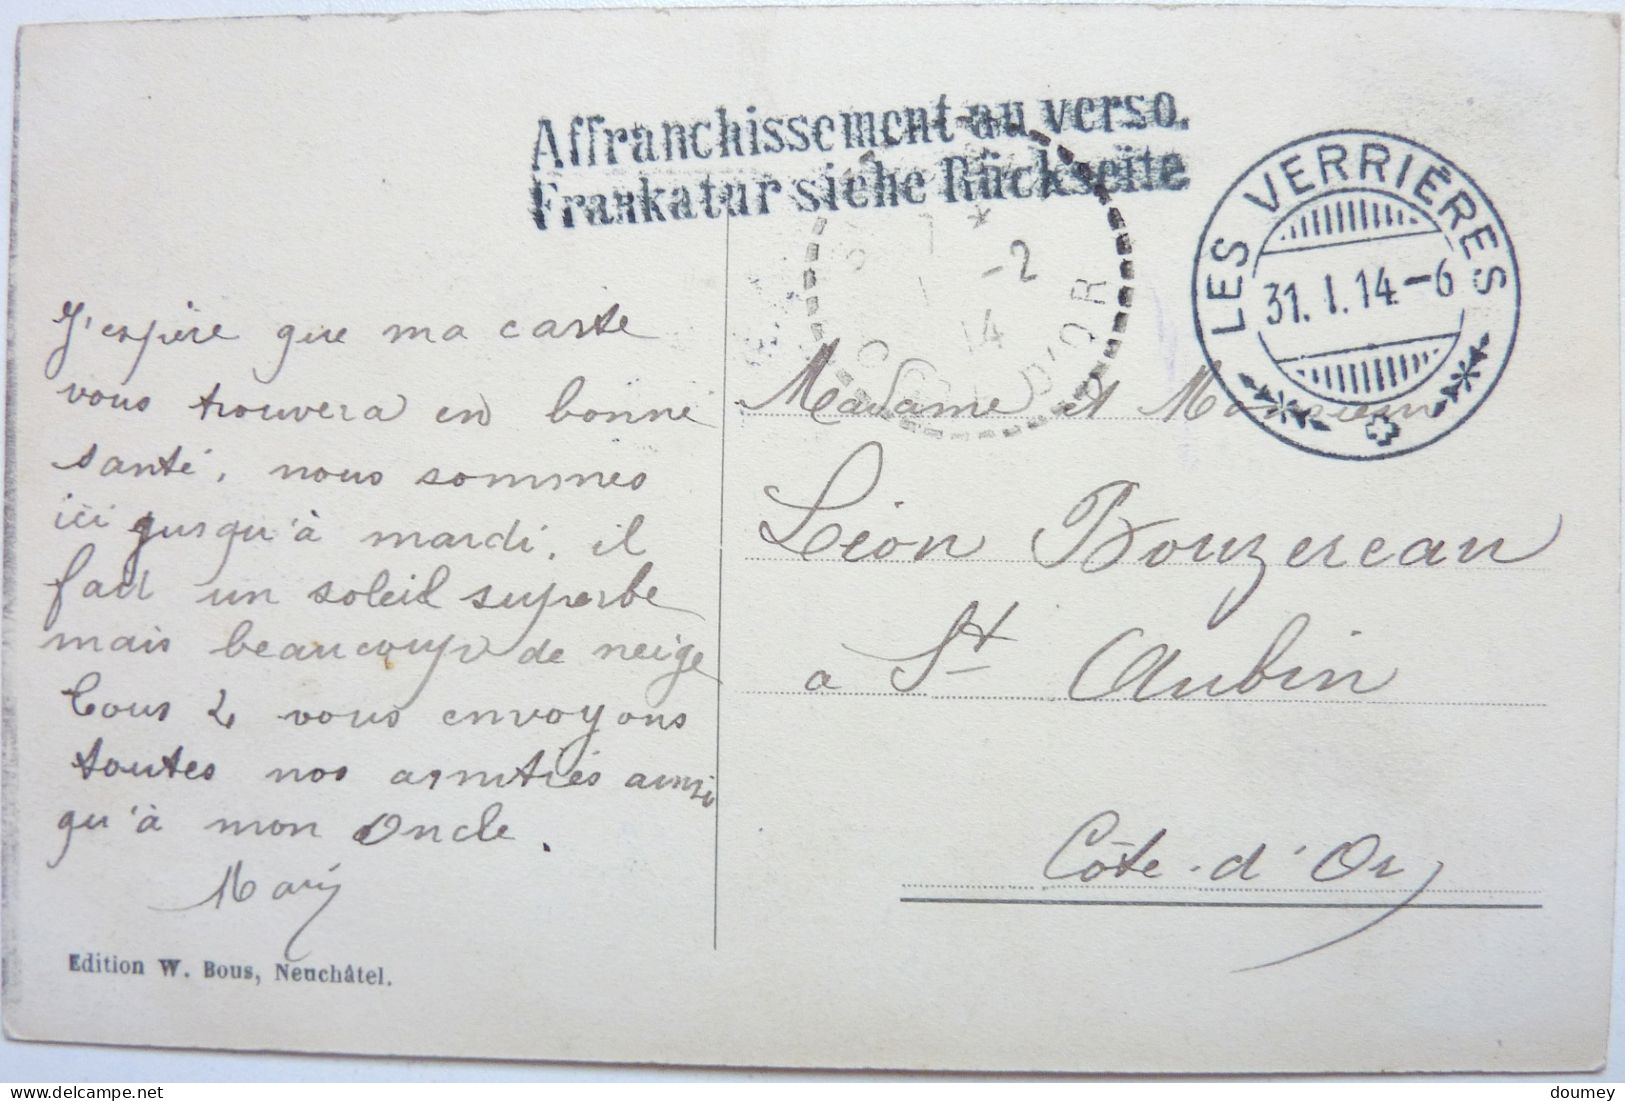 Affranchissement au verso.
Frankatur siehe Rückseite
LES VERRIÈRES
31. I. 14 - 6
1 - 2
14
CÔTE D'OR
J'espère que ma carte
vous trouvera en bonne
santé, nous sommes
ici jusqu'à mardi, il
fait un soleil superbe
mais beaucoup de neige
Tous 2 vous envoyons
toutes nos amitiés ainsi
qu'à mon Oncle.
Mary
Edition W. Bous, Neuchâtel.
Madame et Monsieur
Léon Bouzereau
à St Aubin
Côte-d'Or
doumey